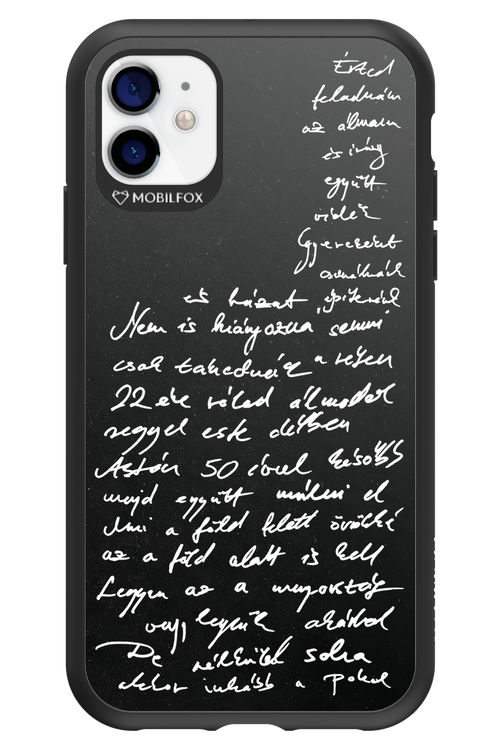 MOBILFOX
Érted
feladnám
az álmom
és így
együtt
veled
Gyerekeket
csinálnék
és házat építenék
Nem is hiányozna semmi
csak takednéz a részen
22 éve rólad álmodok
reggel este délben
Aztán 50 évvel később
majd együtt múlni el
Ami a föld felett örökké
az a föld alatt is kell
Legyen az a mennyország
vagy legyünk akárhol
De nélküled soha
akkor inkább a pokol